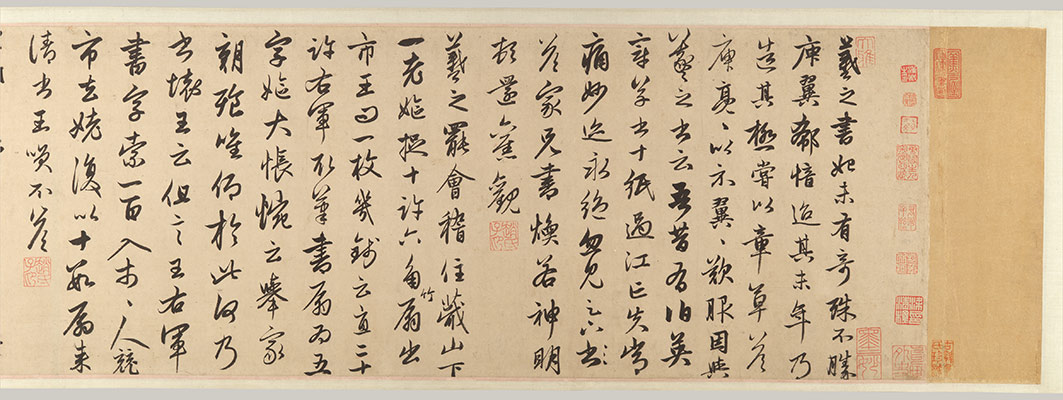 羲之書始未有奇殊不勝
庾翼郗愔迨其末年乃
造其極嘗以章草答
庾亮〻以示翼〻歎服因與
羲之書云吾昔有伯英
章草書十紙過江亡失常
痛妙迹永絕忽見足下書
答家兄書煥若神明
頓還舊觀
趙氏子昂
羲之罷會稽住蕺山下
一老嫗捉十許六角竹扇出
市王問一枚幾錢云直二十
許右軍取筆書扇為五
字嫗大悵惋云舉家
朝飱唯仰於此何乃
書壞王云但言王右軍
書字索一百入市〻人競
市去姥復以十數扇來
請書王笑不答
趙氏子昂